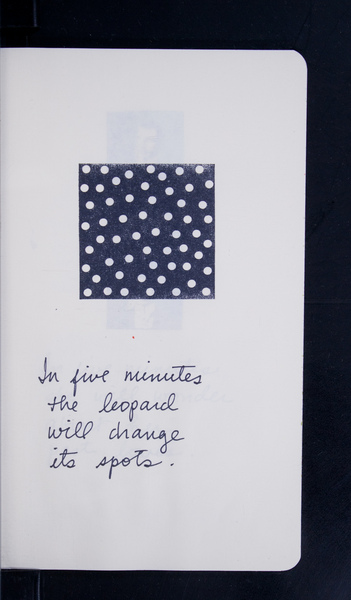 In five minutes
the leopard
will change
its spots.